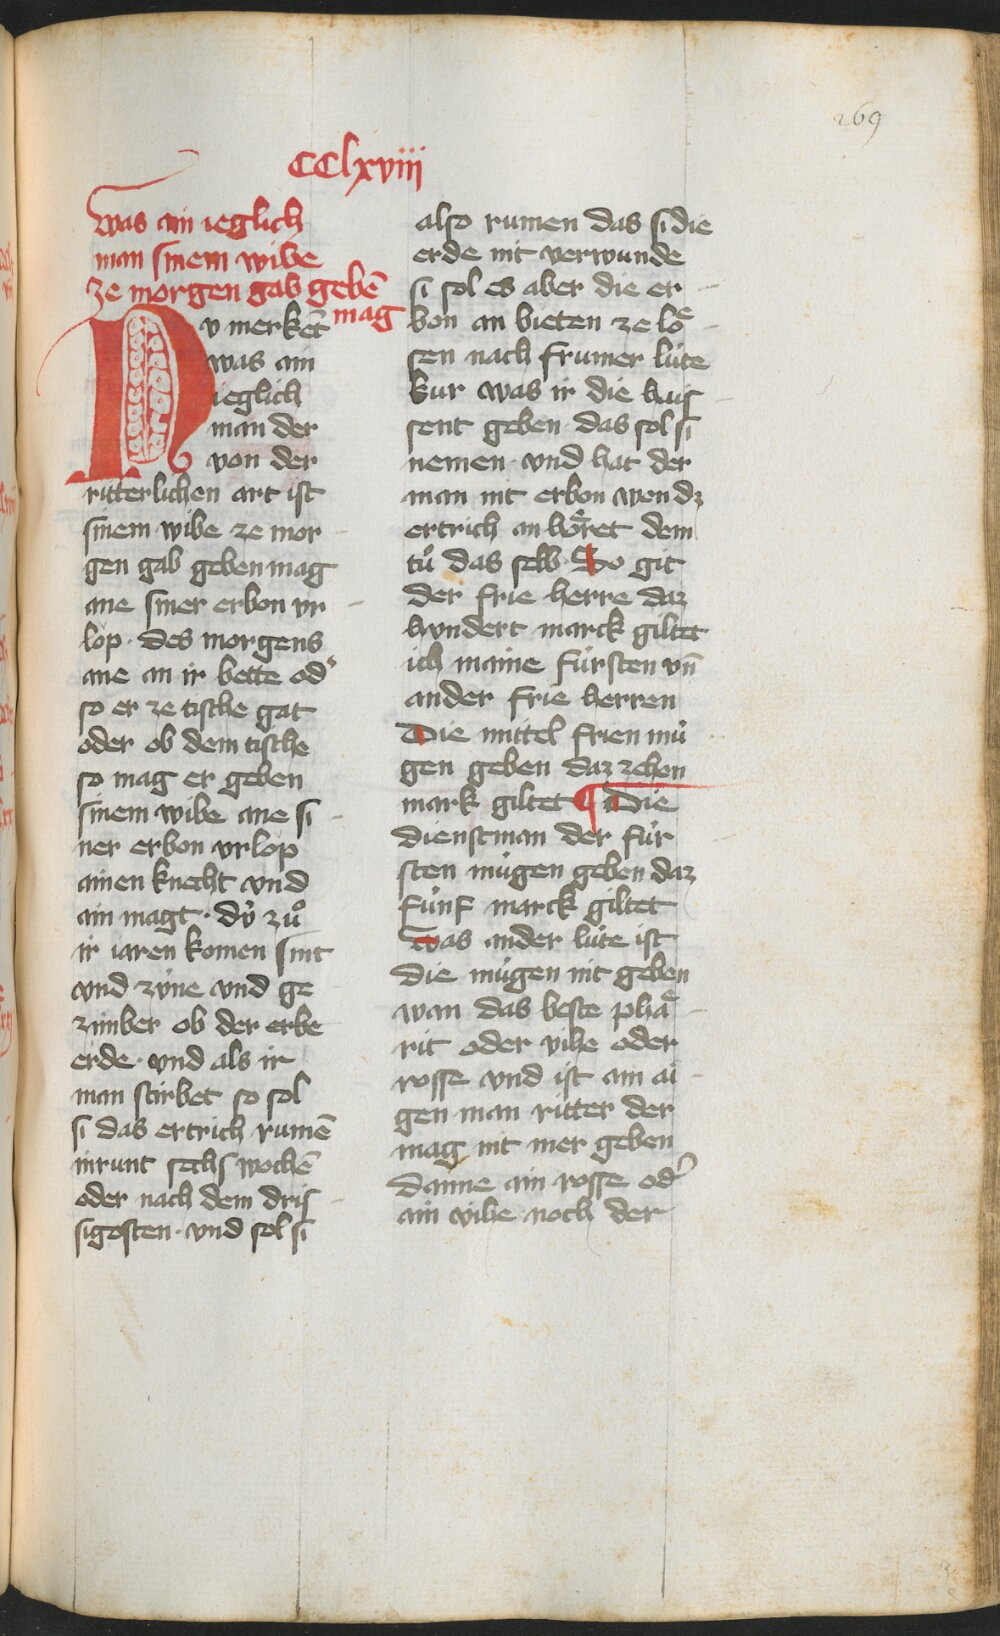 269
CClxviii
Was ain ieglich
man sinem wibe
ze morgen gab gebē
mag
Nv merkēt
was ain
ieglich
man der
von der
ritterlichen art ist
sinem wibe ze mor
gen gab geben mag
ane siner erbon vr
lop · des morgens
ane an ir bette od᾽
so er ze tische gat
oder ob dem tische
so mag er geben
sinem wibe ane si
ner erbon vrlop
ainen knecht vnd
ain magt · dÿ zuͦ
ir iaren komen sint
vnd zv́ne vnd ge
zimber ob der erbe
erde · vnd als ir
man stirbet so sol
si das ertrich rumē
inrunt sechs wochē
oder nach dem dris
sigosten · vnd sol si
also rumen das si die
erde nit verwunde
si sol es aber die er
bon an bieten ze loͤ
sen nach frumer lúte
kur was ir die hais
sent geben · das sol si
nemen · vnd hat der
man nit erbon won dz
ertrich an hoͤret dem
tuͦ das selb · So git
der frie herre daz
hvndert marck giltet
ich maine fúrsten vn̄
ander frie herren
Die mittel frien mú
gen geben daz zehen
mark giltet ¶ Die
dienstman der fúr
sten múgen geben daz
fúnf marck giltet
Was ander lúte ist
die múgen nit geben
wan das beste phaͤ
rit oder vihe oder
rosse vnd ist ain ai
gen man ritter der
mag nit mer geben
danne ain rosse od᾽
ain vihe · noch der